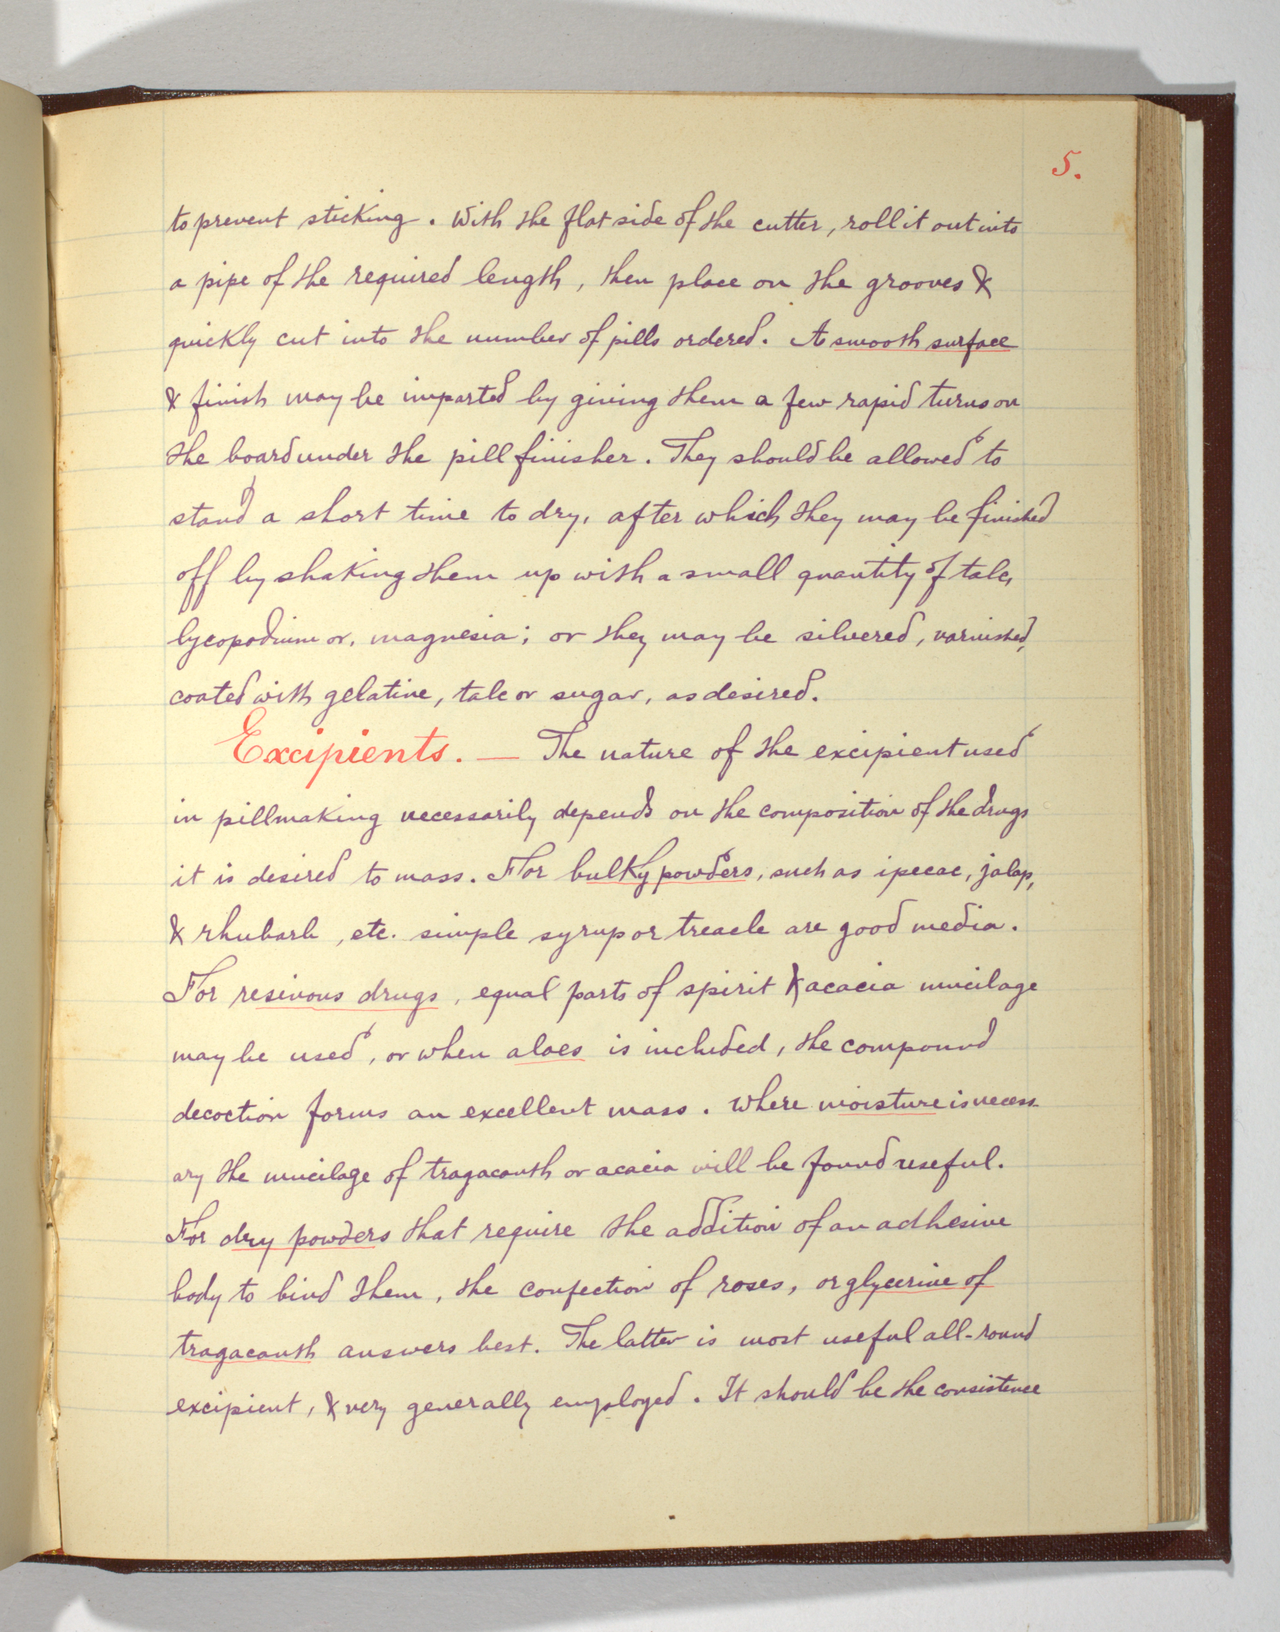 5.
to prevent sticking. With the flat side of the cutter, roll it out into
a pipe of the required length, then place on the grooves &
quickly cut into the number of pills ordered. A smooth surface
& finish may be imparted by giving them a few rapid turns on
the board under the pill finisher. They should be allowed to
stand a short time to dry, after which they may be finished
off by shaking them up with a small quantity of talc,
lycopodium or, magnesia; or they may be silvered, varnished,
coated with gelatine, talc or sugar, as desired.
Excipients. — The nature of the excipient used
in pillmaking necessarily depends on the composition of the drugs
it is desired to mass. For bulky powders, such as ipecac, jalap,
& rhubarb, etc. simple syrup or treacle are good media.
For resinous drugs, equal parts of spirit & acacia mucilage
may be used, or when aloes is included, the compound
decoction forms an excellent mass. Where moisture is necess
ary the mucilage of tragacanth or acacia will be found useful.
For dry powders that require the addition of an adhesive
body to bind them, the confection of roses, or glycerine of
tragacanth answers best. The latter is most useful all-round
excipient, & very generally employed. It should be the consistence